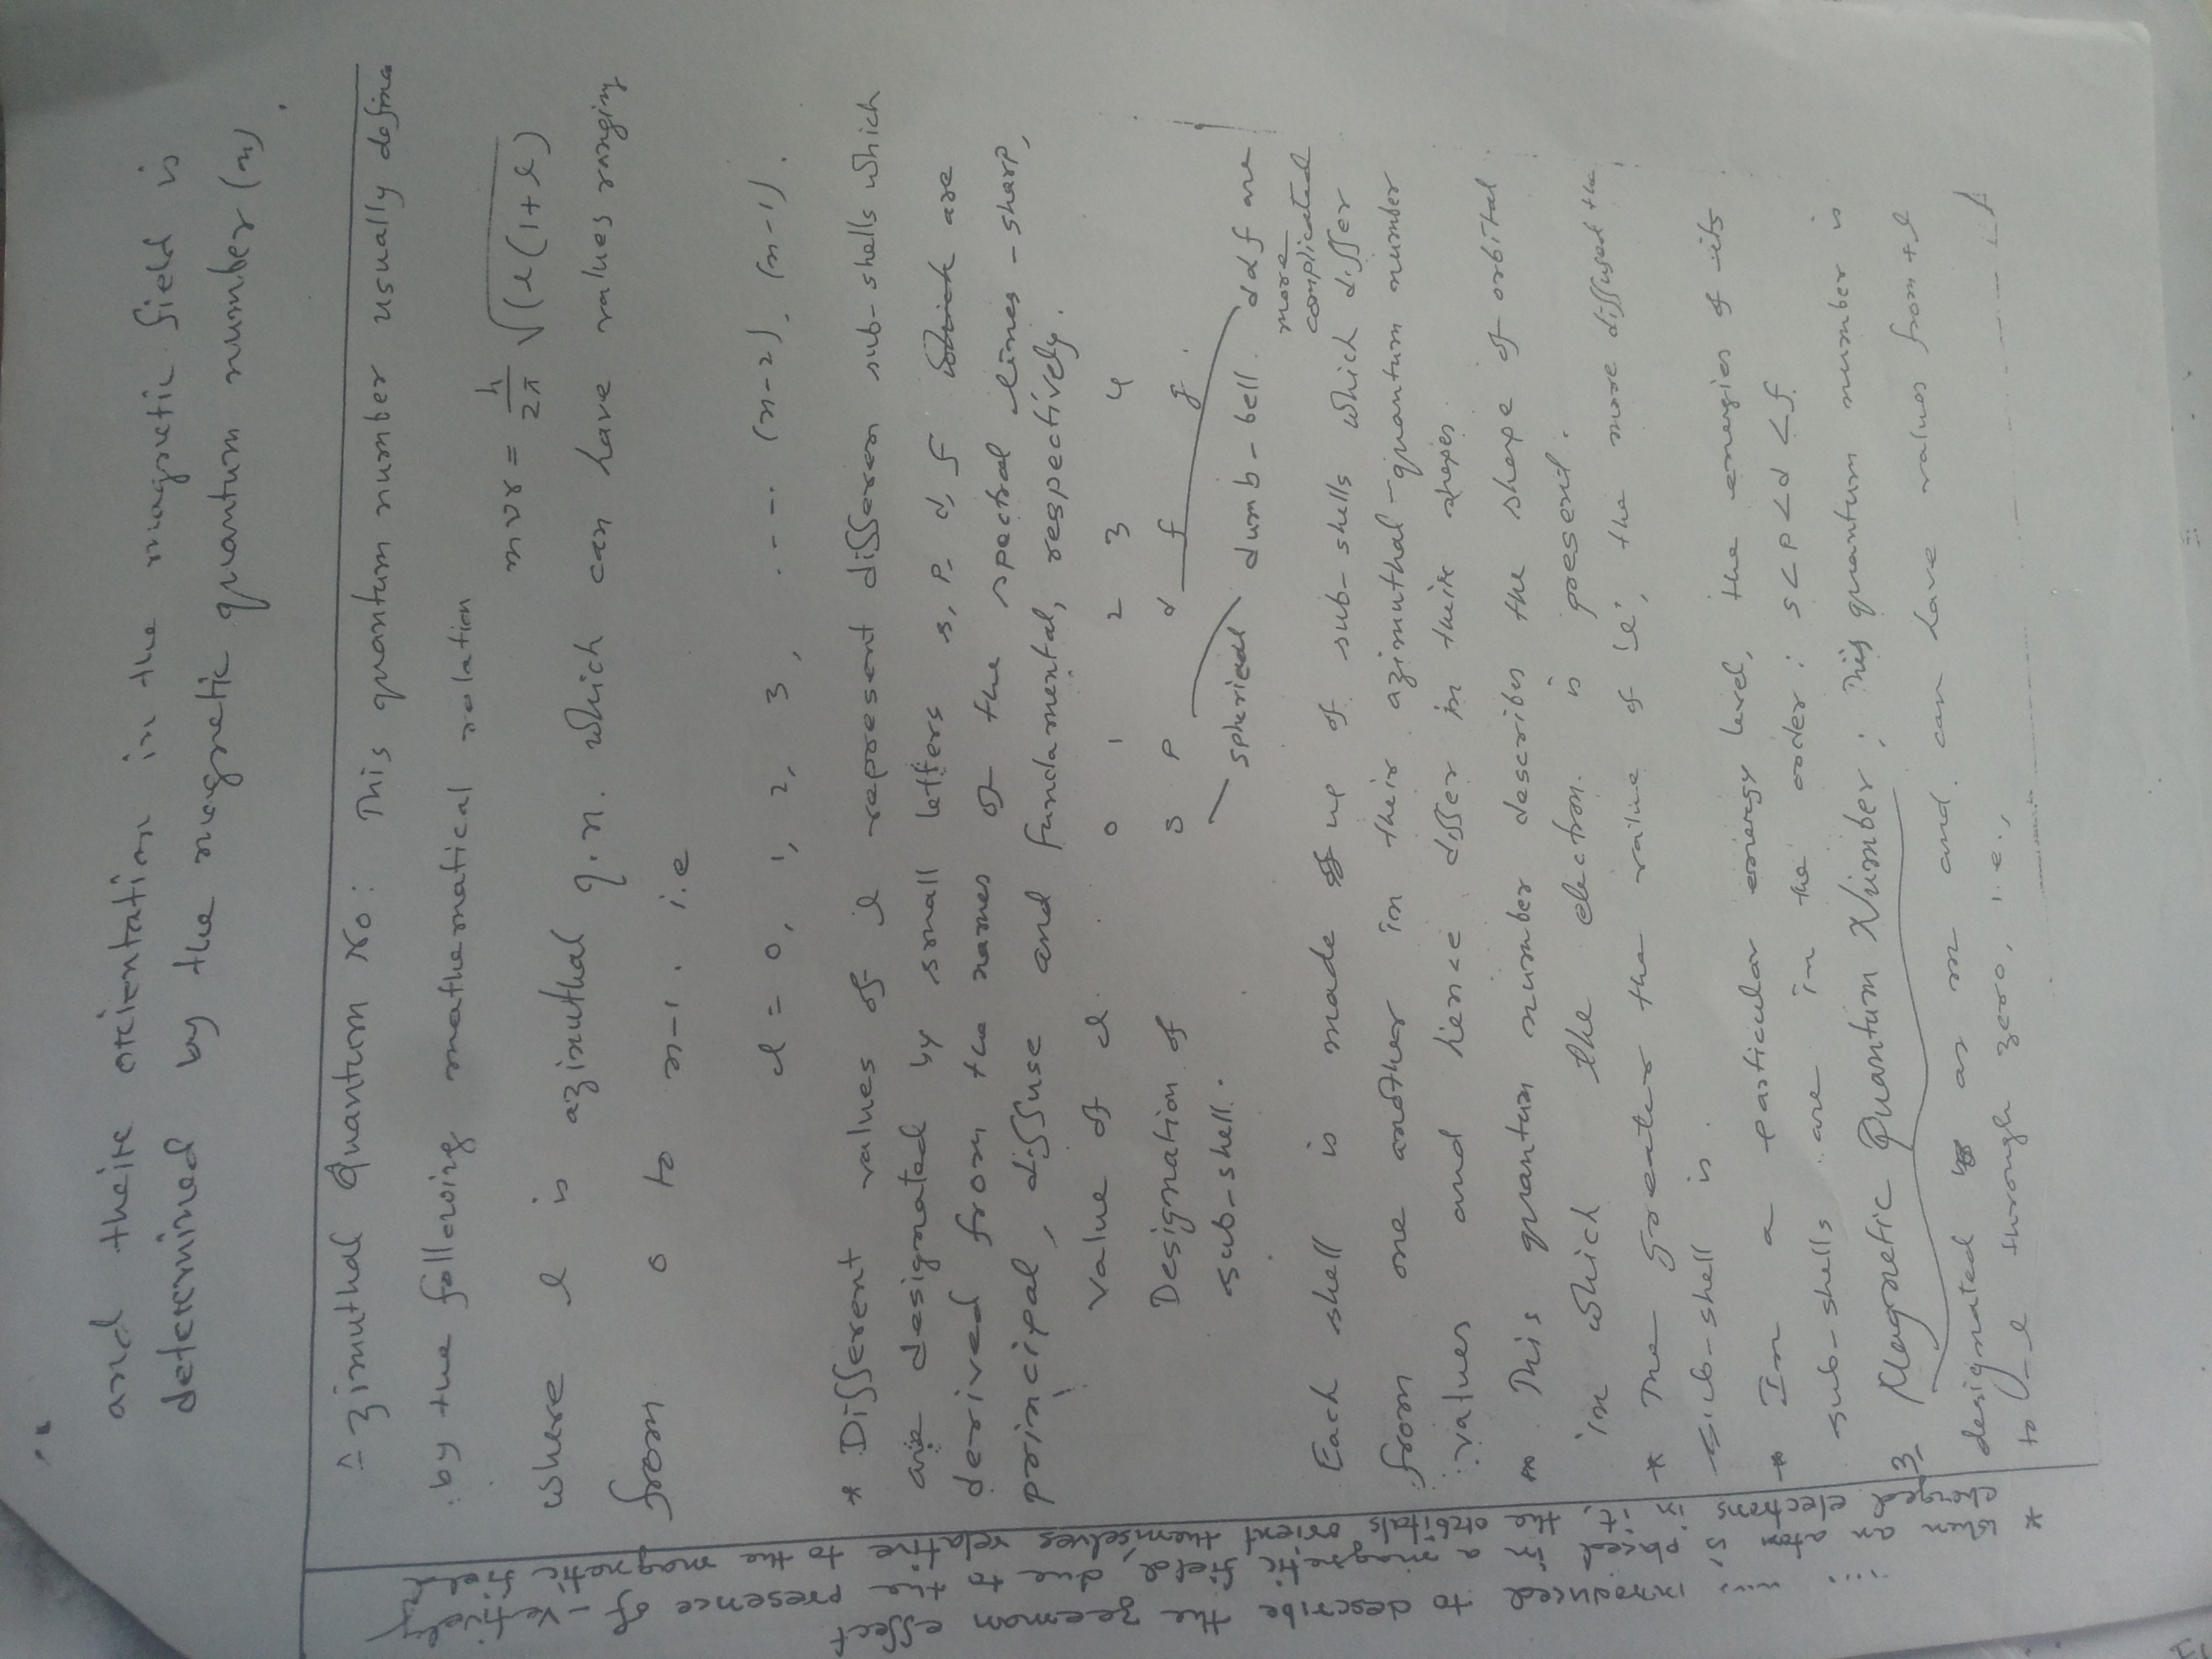 and theire orientation in the magnetic field is
determined by the magnetic quantum number (m).
Azimuthal Quantum No: This quantum number usually define
by the following mathematical relation
mvr = h/2π √(l(1+l)
where l is azimuthal q.n. which can have values ranging
from 0 to n-1. i.e
l = 0, 1, 2, 3, ..... (n-2), (n-1).
* Different values of l represent differen sub-shells which
are designated by small letters s, p, d, f which are
derived from the names of the spectral lines - sharp,
principal, diffuse and fundamental, respectively.
value of l. 0 1 2 3 4
Designation of s p d f g.
sub-shell.
spherical dumb-bell. d & f are
more
complicated
Each shell is made of up of sub-shells which differ
from one another in their azimuthal-quantum number
values and hence differ in their shapes
* This quantum number describes the shape of orbital
in which the electron. is present.
* The greater the value of 'l', the more diffused the
sub-shell is.
* In a particular energy level, the energies of its
sub-shells are in the order: s<p<d<f.
3 Magnetic Quantum Number: This quantum number is
designated by as m and can have values from +l
to -l through zero, i.e.,
introduced to describe the zeeman effect
* when an atom is placed in a magnetic field, due to the presence of -vetively
charged electrons in it, the orbitals orient themselves relative to the magnetic field